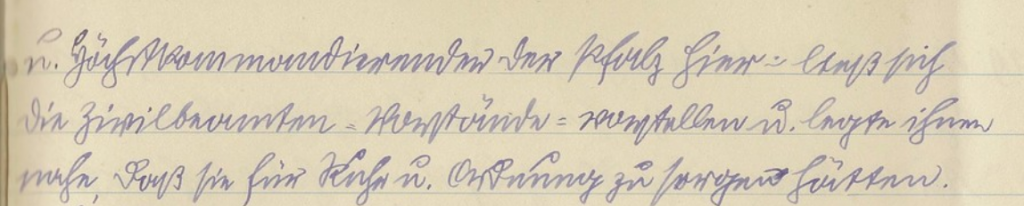 u. Höchstkommandierender der Pfalz hier - ließ sich
die Zivilbeamten = Vorstände = vorstellen u. legte ihnen
nahe, daß sie für Ruhe u. Ordnung zu sorgen hätten.